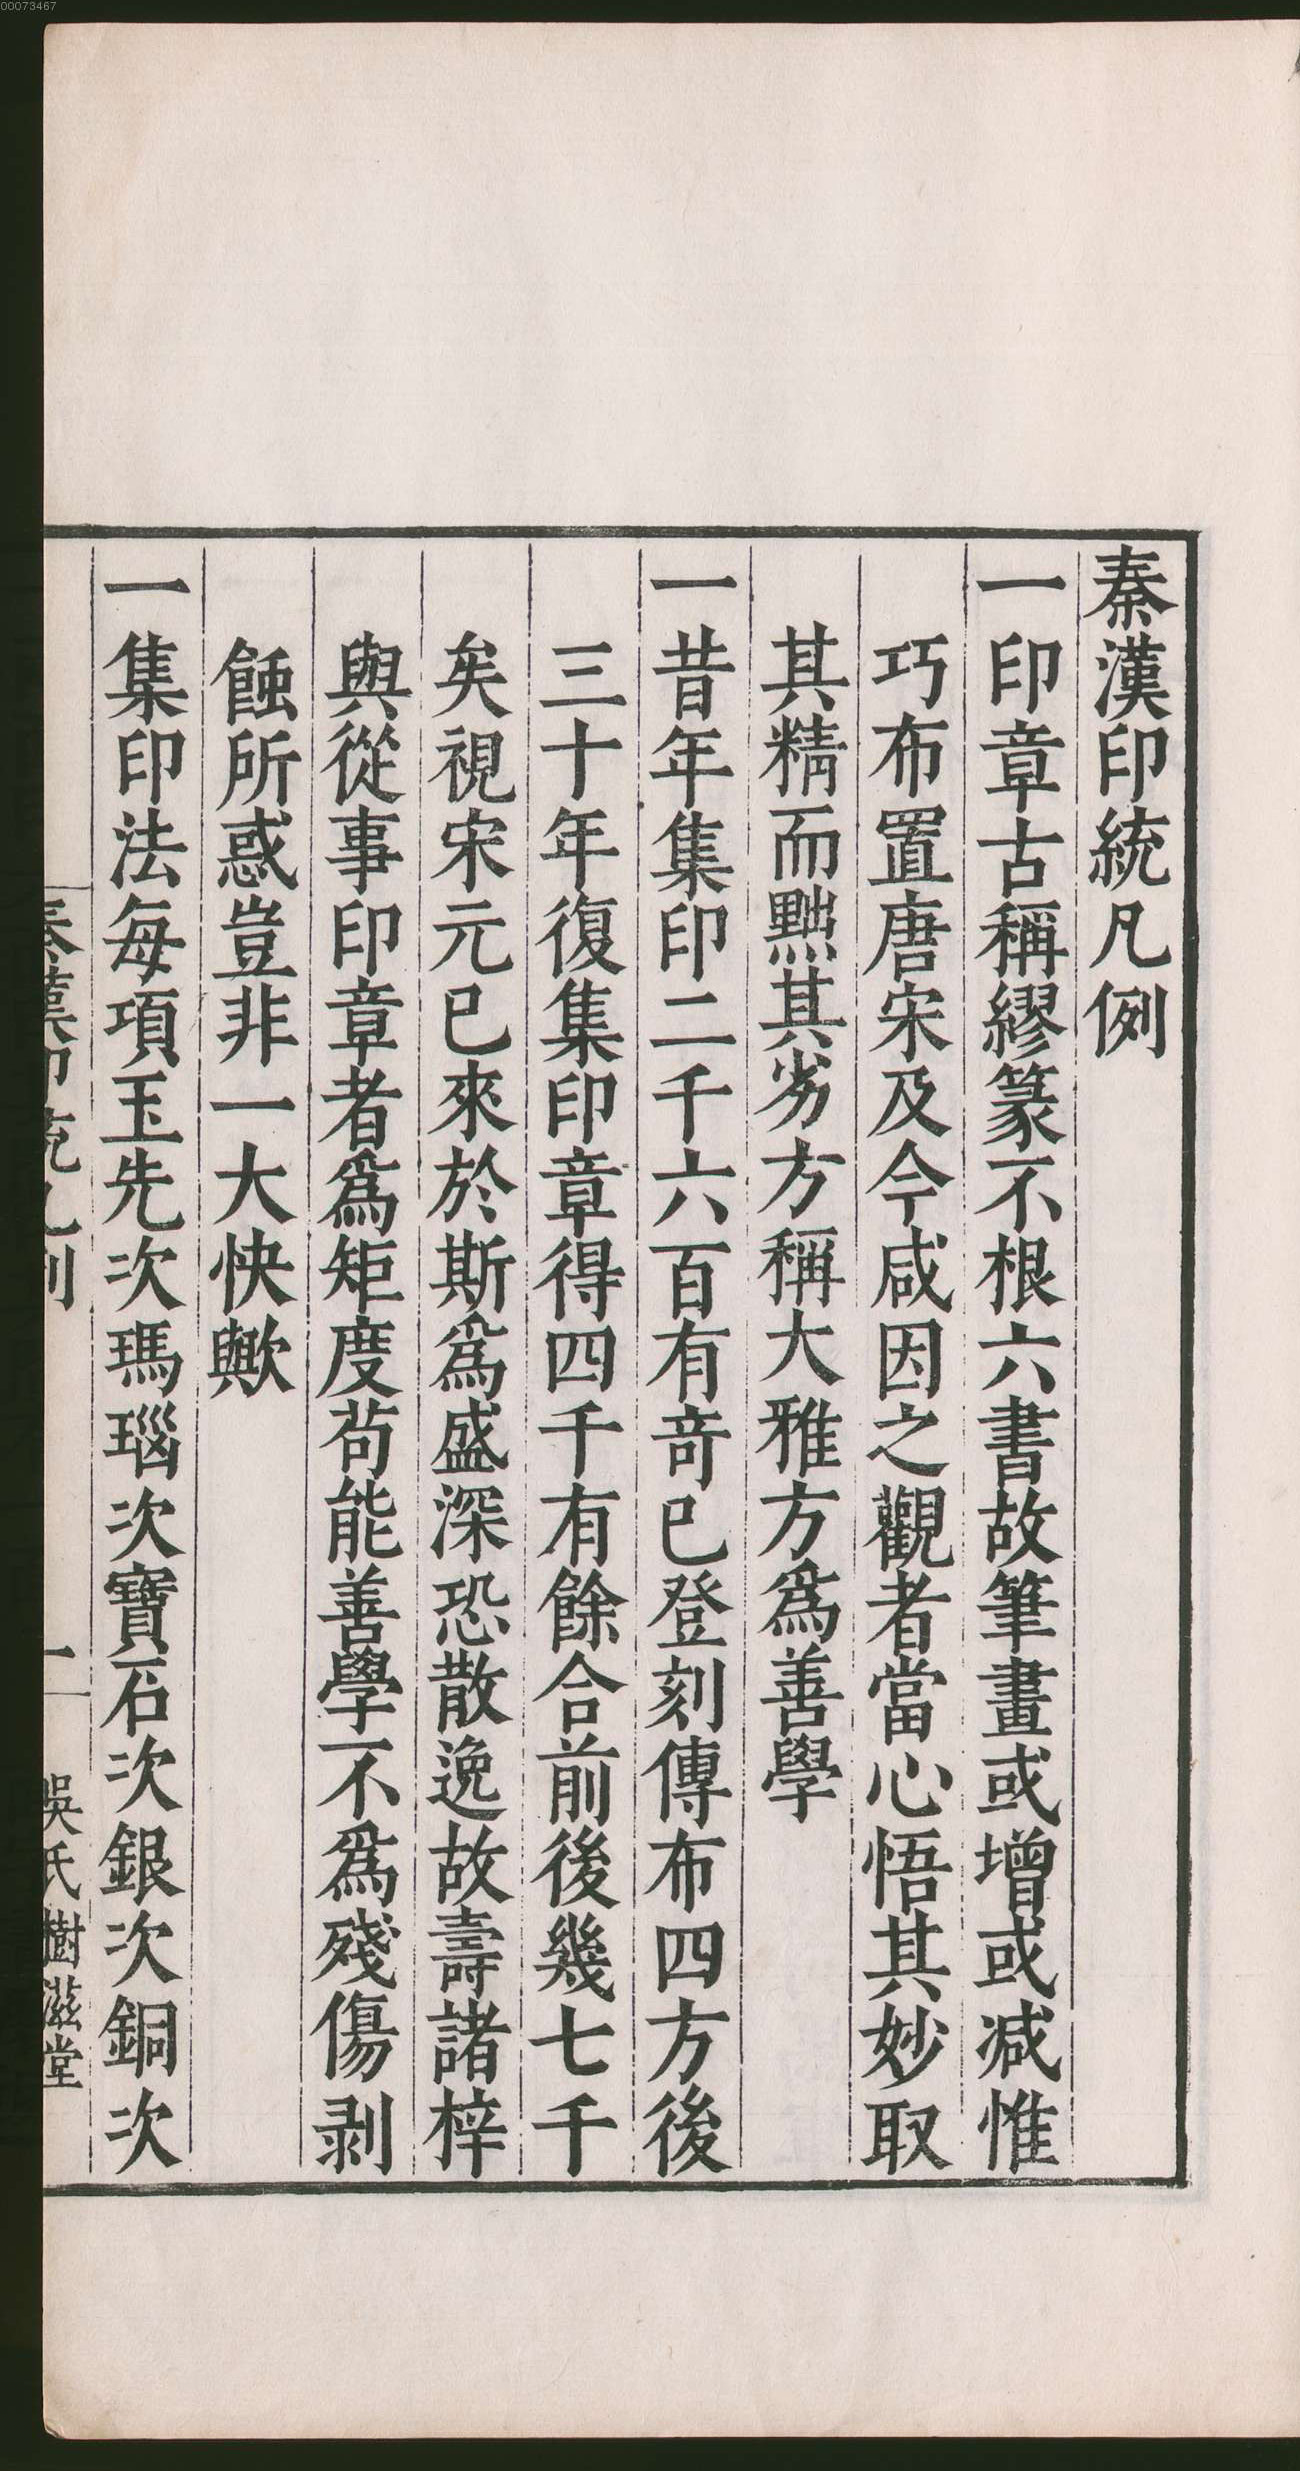 00073467
秦漢印統凡例
一印章古稱繆篆不根六書故筆畫或增或减惟
巧布置唐宋及今咸因之觀者當心悟其妙取
其精而黜其劣方稱大雅方爲善學
一昔年集印二千六百有竒已登刻傳布四方後
三十年復集印章得四千有餘合前後幾七千
矣視宋元已來於斯爲盛深恐散逸故壽諸梓
與從事印章者爲矩度苟能善學不爲殘傷剥
蝕所惑豈非一大快歟
一集印法每項玉先次瑪瑙次寶石次銀次銅次
秦漢印統凡例 一 吳氏樹滋堂